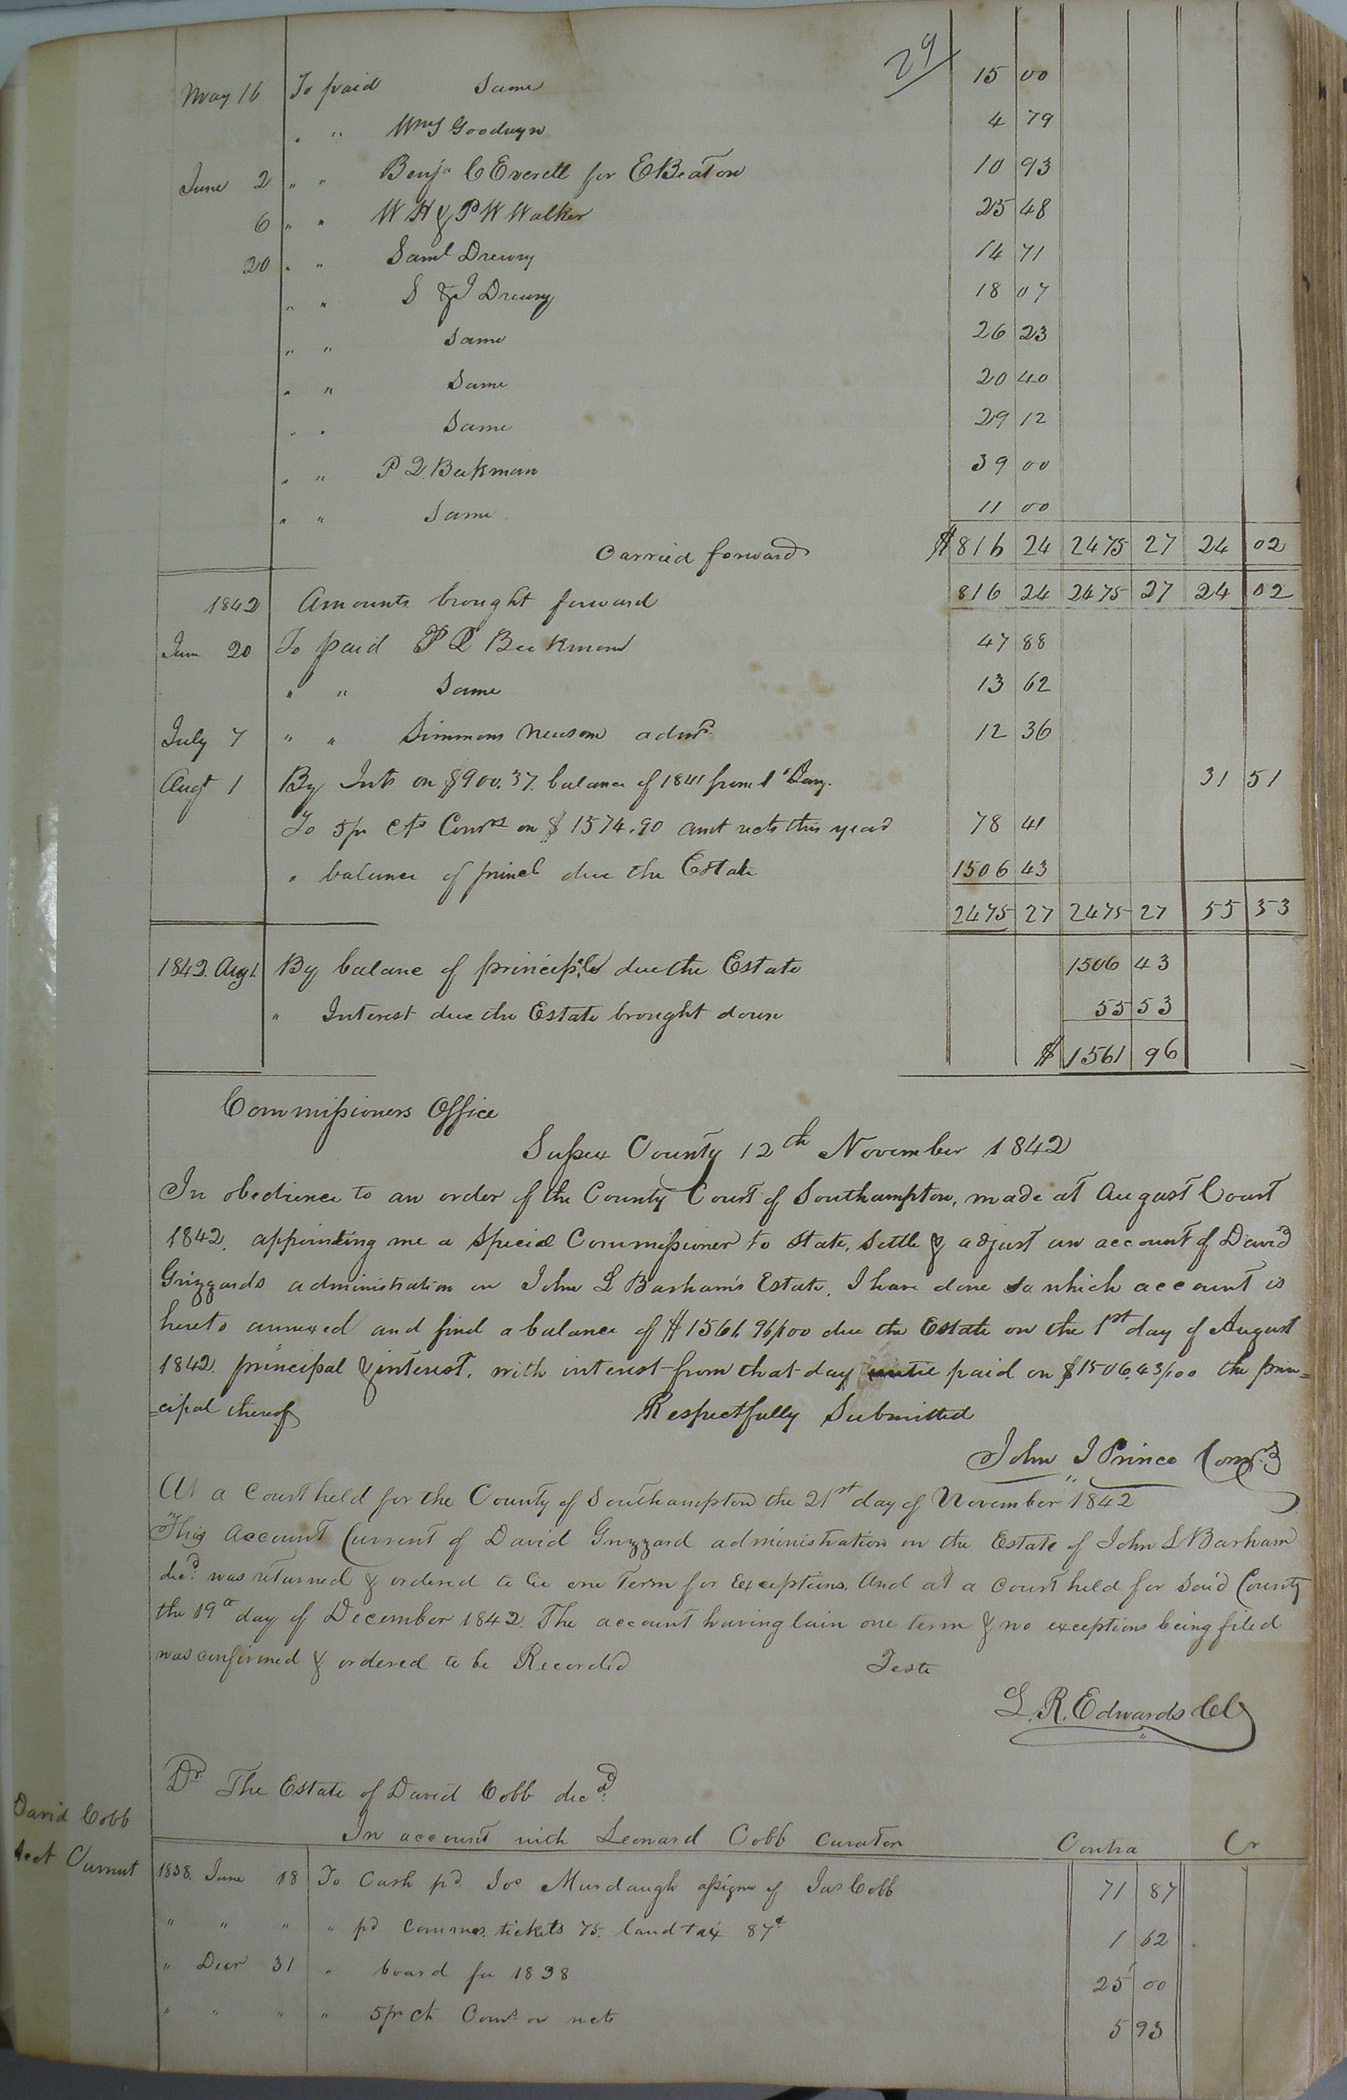 29
May 16 To paid Same 15 00
" " Wm S Goodwyn 4 79
June 2 " " Benja C Everett for E Beaton 10 93
6 " " W H & P W Walker 25 48
20 " " Saml Drewry 14 71
" " S & J Drewry 18 07
" " Same 26 23
" " Same 20 40
" " Same 29 12
" " P Q Beekman 39 00
" " Same 11 00
Carried forward $816 24 2475 27 24 02
1842 Amounts brought forward 816 24 2475 27 24 02
June 20 To paid P Q Beekman 47 88
" " Same 13 62
July 7 " " Simmons Newsom admr 12 36
Augt 1 By Ints on $900.37 balance of 1841 from 1st Jany. 31 51
To 5 pr cts Comrs on $1574.90 amt rects this year 78 41
" balance of princl due the Estate 1506 43
2475 27 2475 27 55 53
1842 Aug 1. By balance of principle due the Estate 1506 43
" Interest due the Estate brought down 55 53
$ 1561 96
Commissioners Office
Sussex County 12th November 1842
In obedience to an order of the County Court of Southampton, made at August Court
1842. appointing me a Special Commissioner to State, Settle & adjust an account of David
Grizzards administration on John L Barham's Estate, I have done so which account is
hereto annexed and find a balance of $1561 96/100 due the Estate on the 1st day of August
1842 principal & interest, with interest from that day until paid on $1506.43/100 the prin=
=cipal thereof Respectfully Submitted
John J Prince Comr
At a Court held for the County of Southampton the 21st day of November 1842
This Account Current of David Grizzard administration on the Estate of John L Barham
decd. was returned & ordered to lie one Term for Exceptions. And at a Court held for said County
the 19th day of December 1842 The account having lain one term & no exceptions being filed
was confirmed & ordered to be Recorded Teste
L. R. Edwards Cl
David Cobb
Acct Current
Dr. The Estate of David Cobb decd.
In account with Leonard Cobb Curator Contra Cr
1838. June 18 To Cash pd Jos Murdaugh assignee of Jas Cobb 71 87
" " " " pd Commrs. tickets 75. land tax 87c 1 62
" Decr 31 " board for 1838 25 00
" " " " 5 pr ct Coms. on rects 5 93